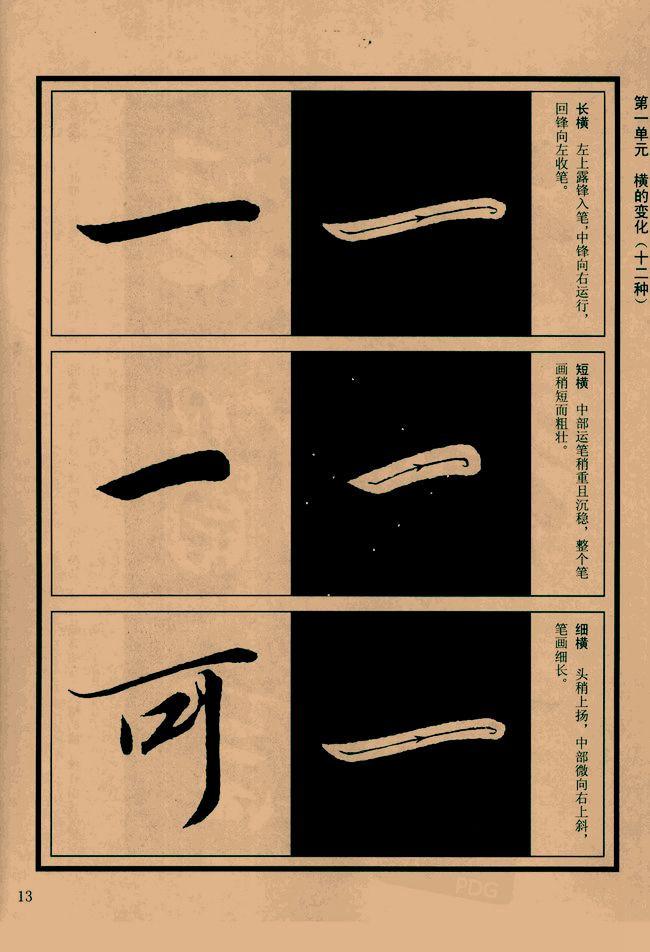 第一单元 横的变化（十二种）
长横 左上露锋入笔，中锋向右运行，
回锋向左收笔。
一
短横 中部运笔稍重且沉稳，整个笔
画稍短而粗壮。
一
细横 头稍上扬，中部微向右上斜，
笔画细长。
可
13
PDG